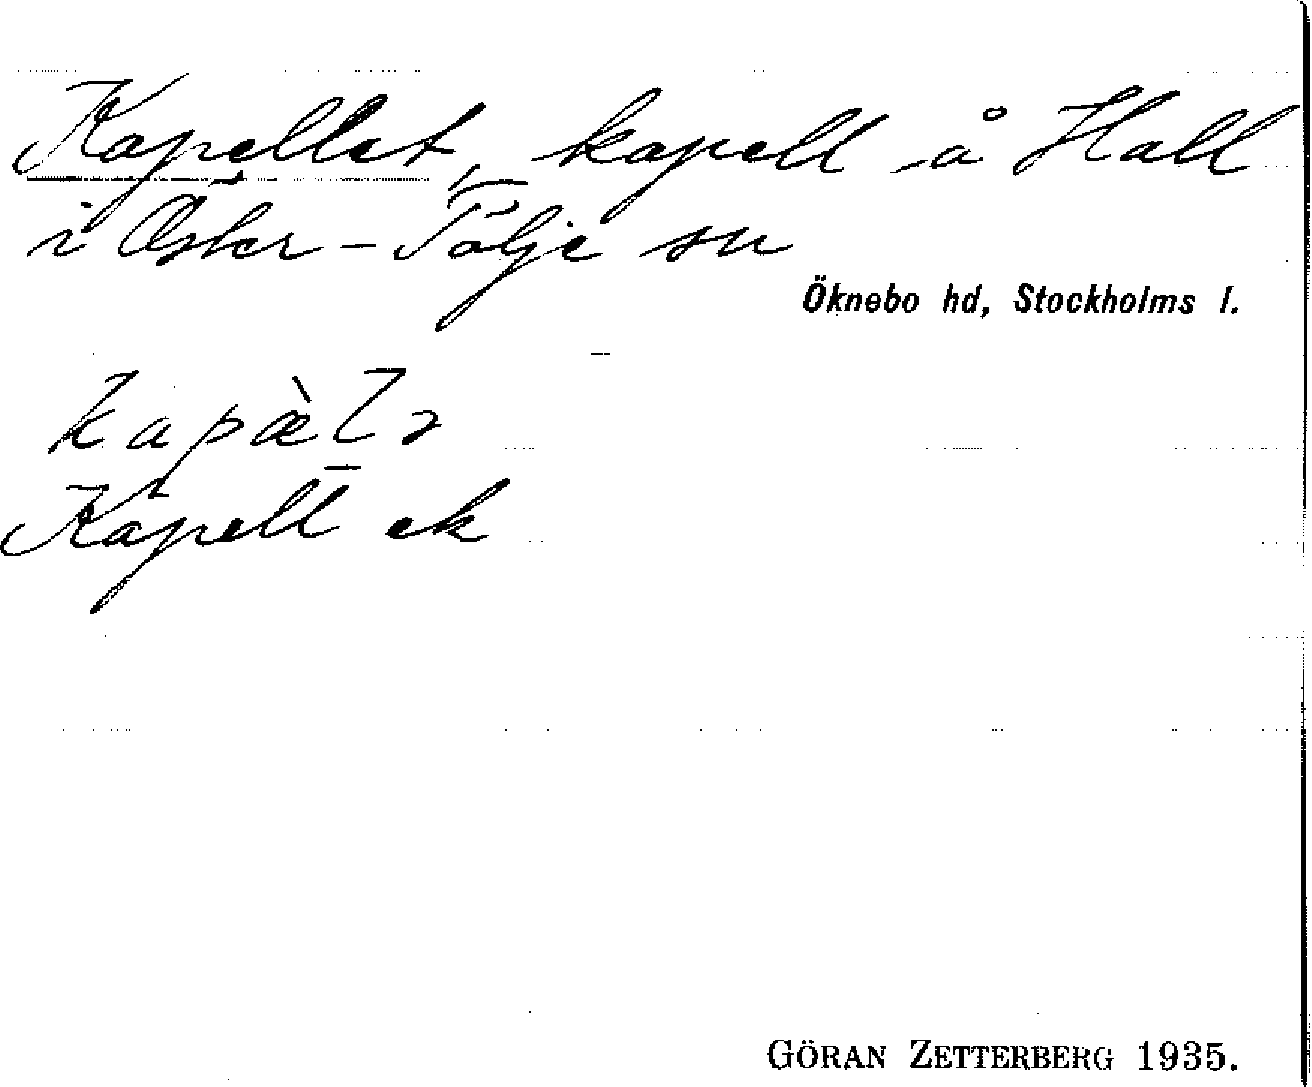 Kapellet, kapell å Hall
i Öster-Tälje sn
Öknebo hd, Stockholms l.
Kapell ek
GÖRAN ZETTERBERG 1935.